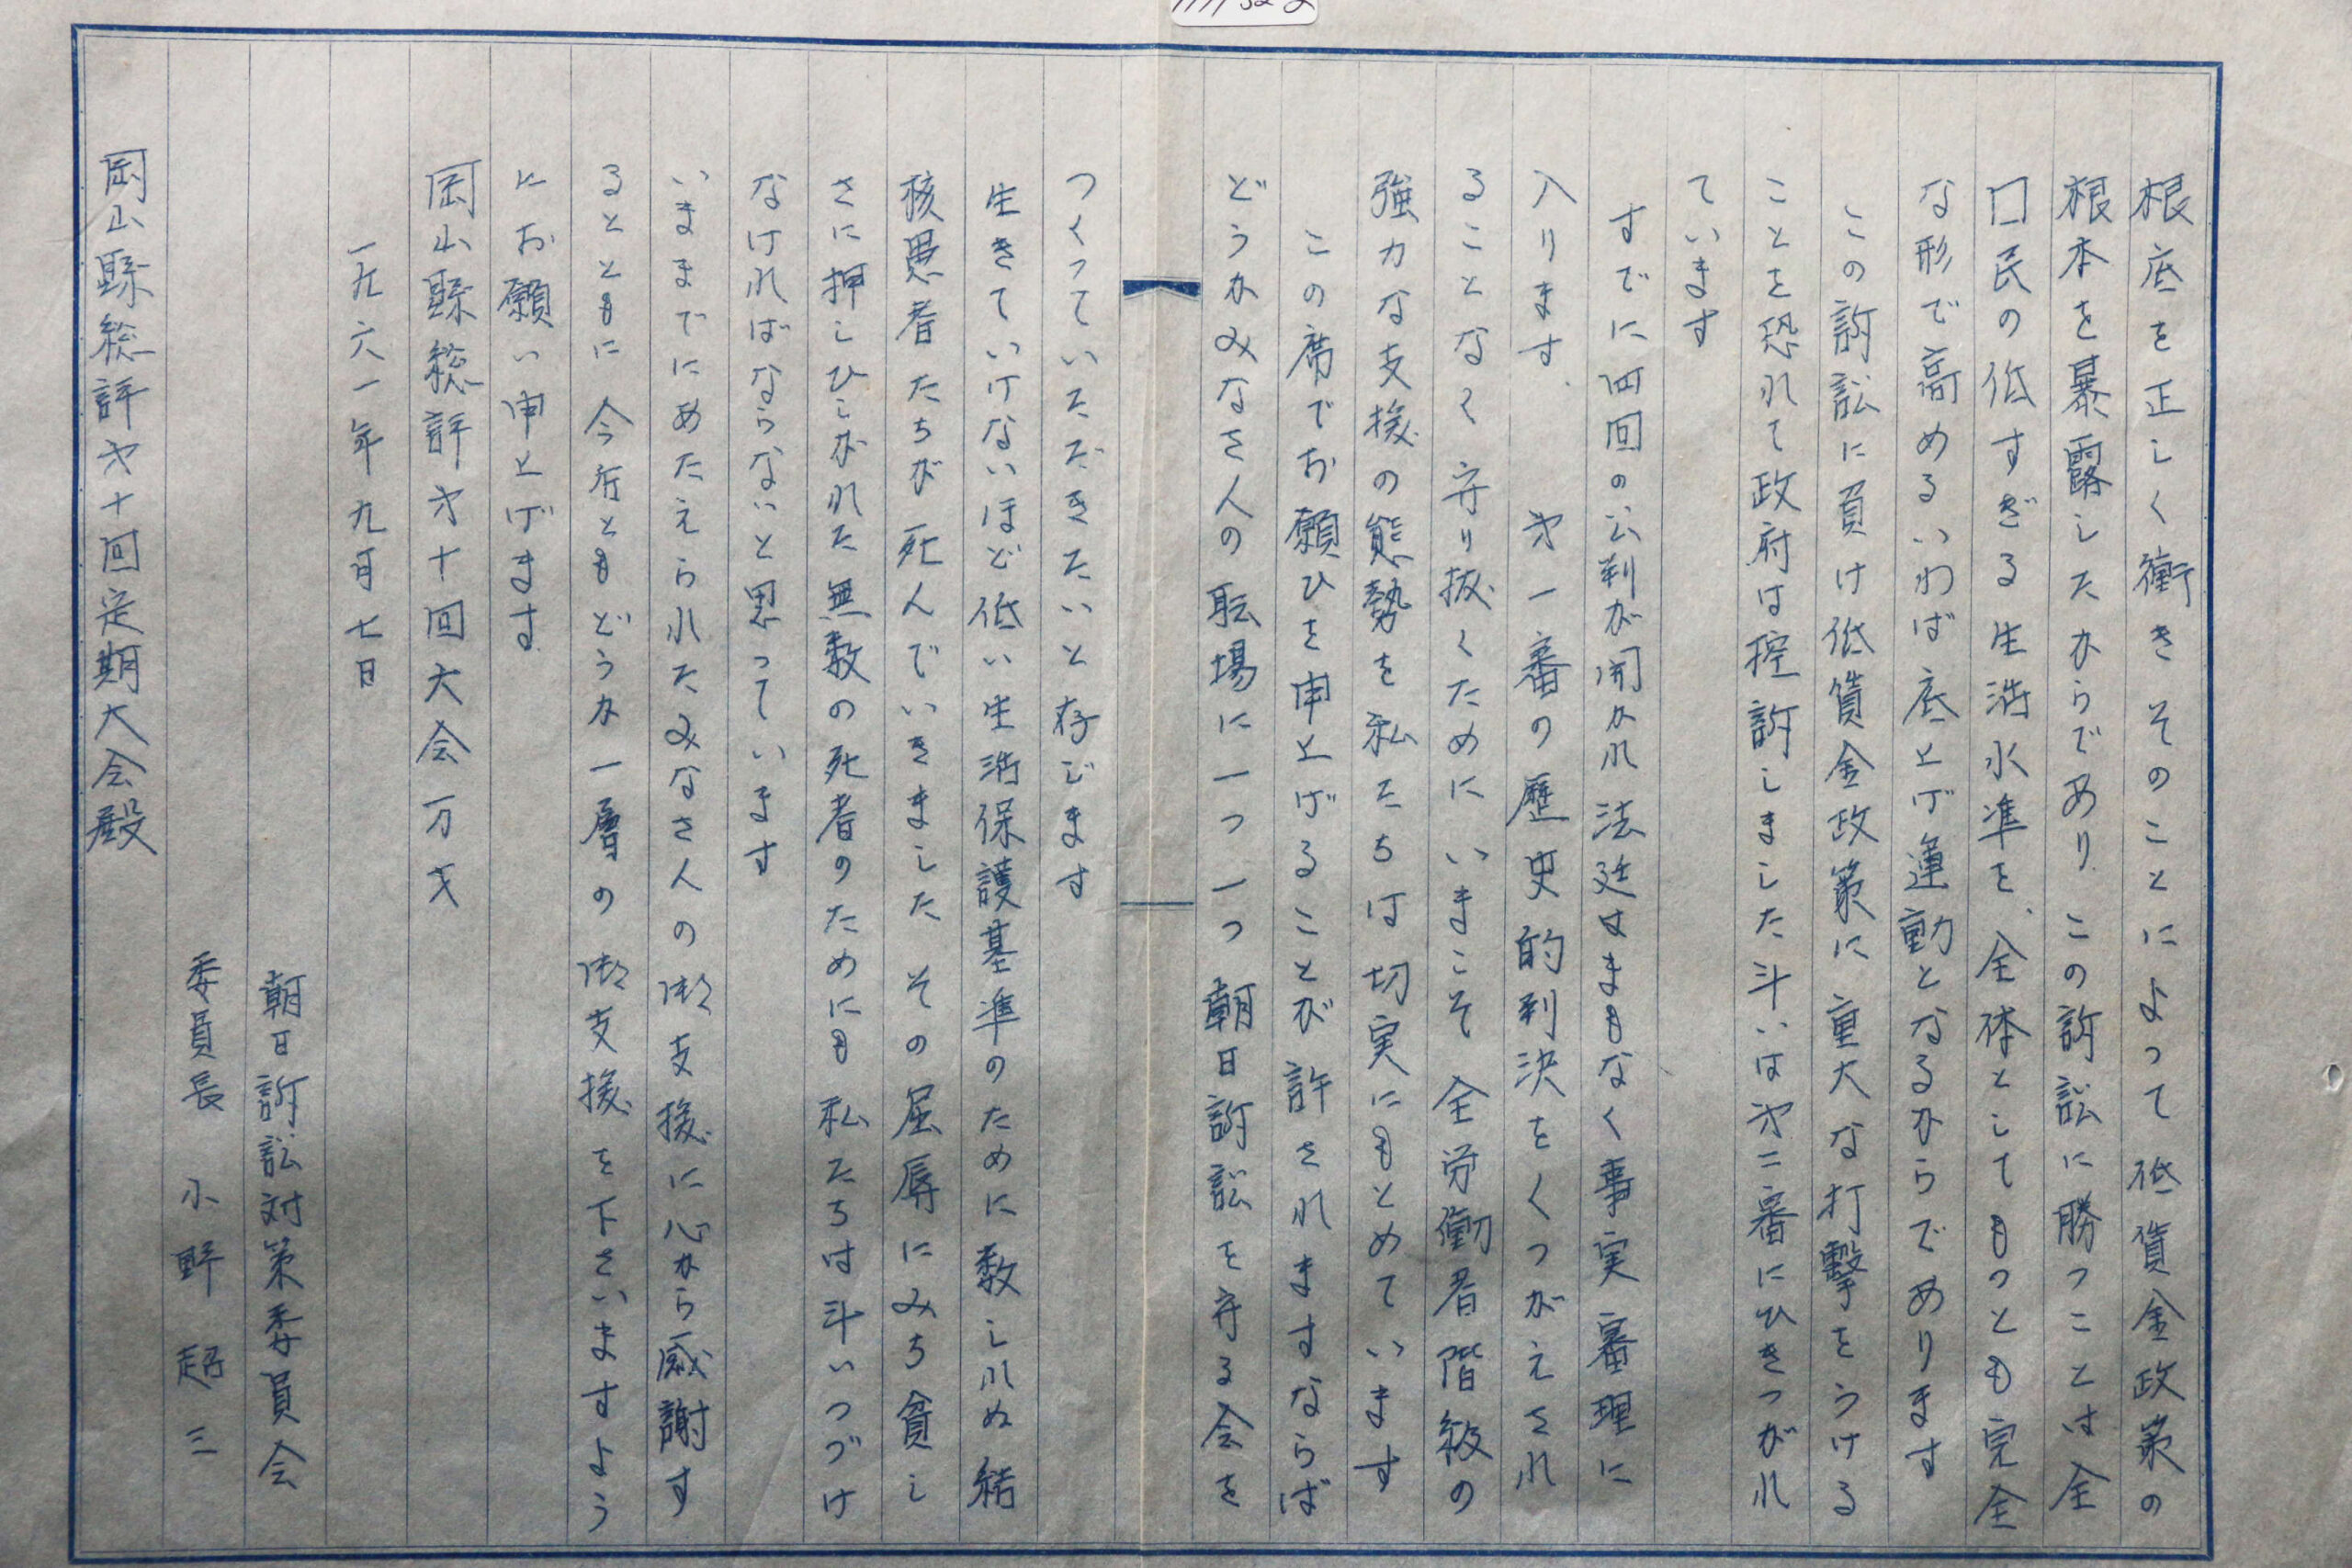 根底を正しく衝き そのことによって 低賃金政策の
根本を暴露したからであり この訴訟に勝つことは 全
口民の低すぎる生活水準を、全体としてもっとも完全
な形で高めるいわば底上げ運動となるからであります
この訴訟に負け低賃金政策に 重大な打撃をうける
ことを恐れて政府は控訴しました斗いは才二審にひきつがれ
ています
すでに四回の公判が開かれ 法廷はまもなく事実審理に
入ります、 才一審の歴史的判決をくつがえされ
ることなく 守り抜くために いまこそ 全労働者階級の
強力な支援の態勢を私たちは切実にもとめています
この席でお願ひを申上げることが許されますならば
どうかみなさん の職場に一つ一つ 朝日訴訟を守る会を
つくっていただきたいと存じます
生きていけないほど低い生活保護基準のために数しれぬ結
核患者たちが死んでいきました その屈辱にみち貧し
さに押しひしがれた無数の死者のためにも 私たちは斗いつづけ
なければならないと思っています
いままでにあたえられたみなさんの御支援に心から感謝す
るとともに 今后ともどうか一層の御支援を下さいますよう
にお願い申上げます
岡山縣総評才十回大会万才
一九六一年九月七日
朝日訴訟対策委員会
委員長 小野超三
岡山縣総評才十回定期大会殿